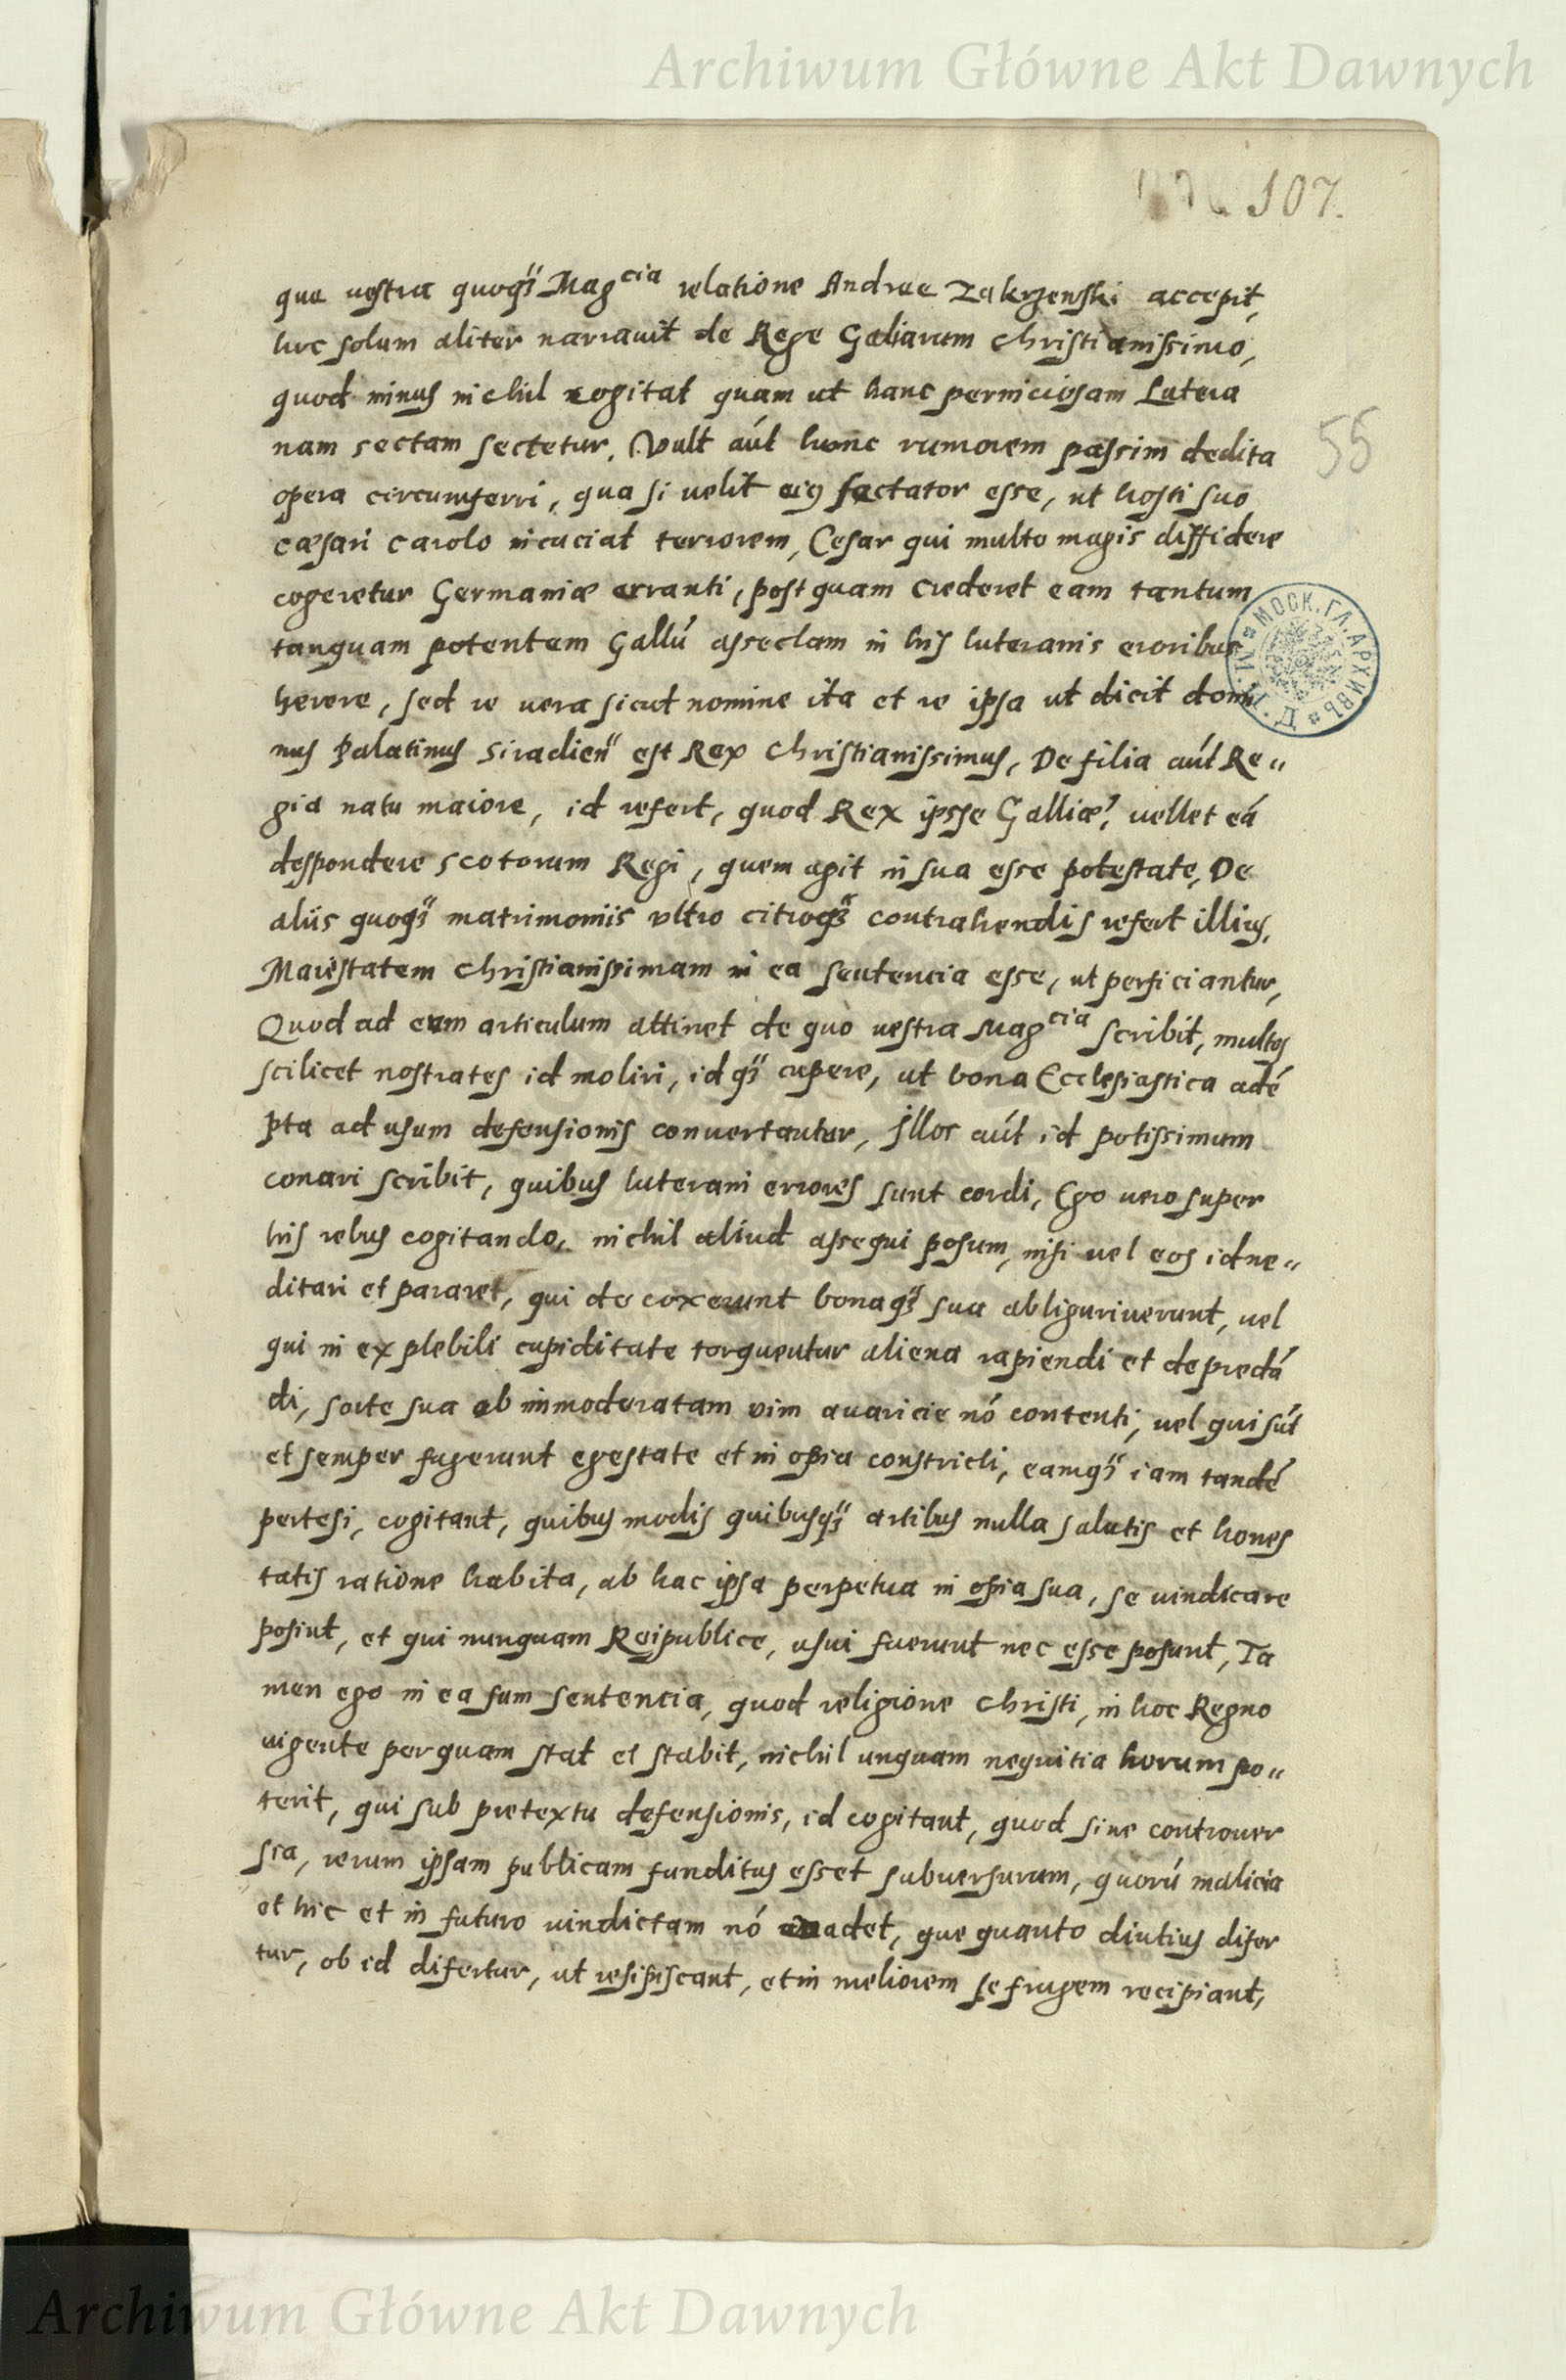 Archiwum Główne Akt Dawnych
107.
que vestra quoq3 Mag^cia relatione Andree Zakrzenski accepit,
hic solum aliter narrauit de Rege Galiarum Christianissimo,
quod minus nichil cogitat quam ut hanc perniciosam Lutera
nam sectam sectetur. Vult aút hunc rumorem passim dedita
opera circumferri, qua si uelit eiꝰ sectator esse, ut hosti suo
cæsari Carolo incuciat terrorem, Cesar qui multo magis diffidere
cogeretur Germaniæ erranti, post quam crederet eam tantum
tanquam potentem Gallú asseclam in his luteranis eroribus
herere, sed re uera sicut nomine ita et re ipsa ut dicit domi
nus Palatinus Siradien̄ est Rex Christianissimus, De filia aút Re„
gia natu maiore, id refert, quod Rex ipsse Galliæ, uellet eá
despondere scotorum Regi, quem agit in sua esse potestate, De
aliis quoq3 matrimoniis vltro citroq3 contrahendis refert illius,
Maiestatem Christianissimam in ea sentencia esse, ut perficiantur,
Quod ad eum articulum attinet de quo uestra Mag^cia scribit, multos
scilicet nostrates id moliri, id q3 cupere, ut bona Ecclesiastica adé
pta ad usum defensionis conuertantur, Illos aút id potissimum
conari scribit, quibus luterani errores sunt cordi, Ego uero super
his rebus cogitando, nichil aliud assequi posum, nisi uel eos id me„
ditari et pararet, qui de coxerunt bonaq3 sua abliguriuerunt, uel
qui in ex plebili cupiditate torquentur aliena rapiendi et depredá
di, sorte sua ob immoderatam vim auaricie nó contenti, uel qui sút
et semper fuerunt egestate et in opia constricti, eamq3 iam tandé
pertesi, cogitant, quibus modis quibusq3 artibus nulla salutis et hones
tatis ratione habita, ab hac ipsa perpetua in opia sua, se uindicare
posint, et qui nunquam Reipublice, usui fuerunt nec esse posunt, Ta
men ego in ea sum sentencia, quod religione Christi, in hoc Regno
uigente per quam stat et stabit, nichil unquam nequitia horum po„
terit, qui sub pretextu defensionis, id cogitant, quod sine controuer
sia, rerum ipsam publicam funditus esset subuersurum, quorú malicia
et hic et in futuro uindictam nó uadet, que quanto diutius difer
tur, ob id difertur, ut resipiscant, et in meliorem se frugem recipiant,
55
МОСК. ГЛ. АРХИВЪ
Archiwum Główne Akt Dawnych